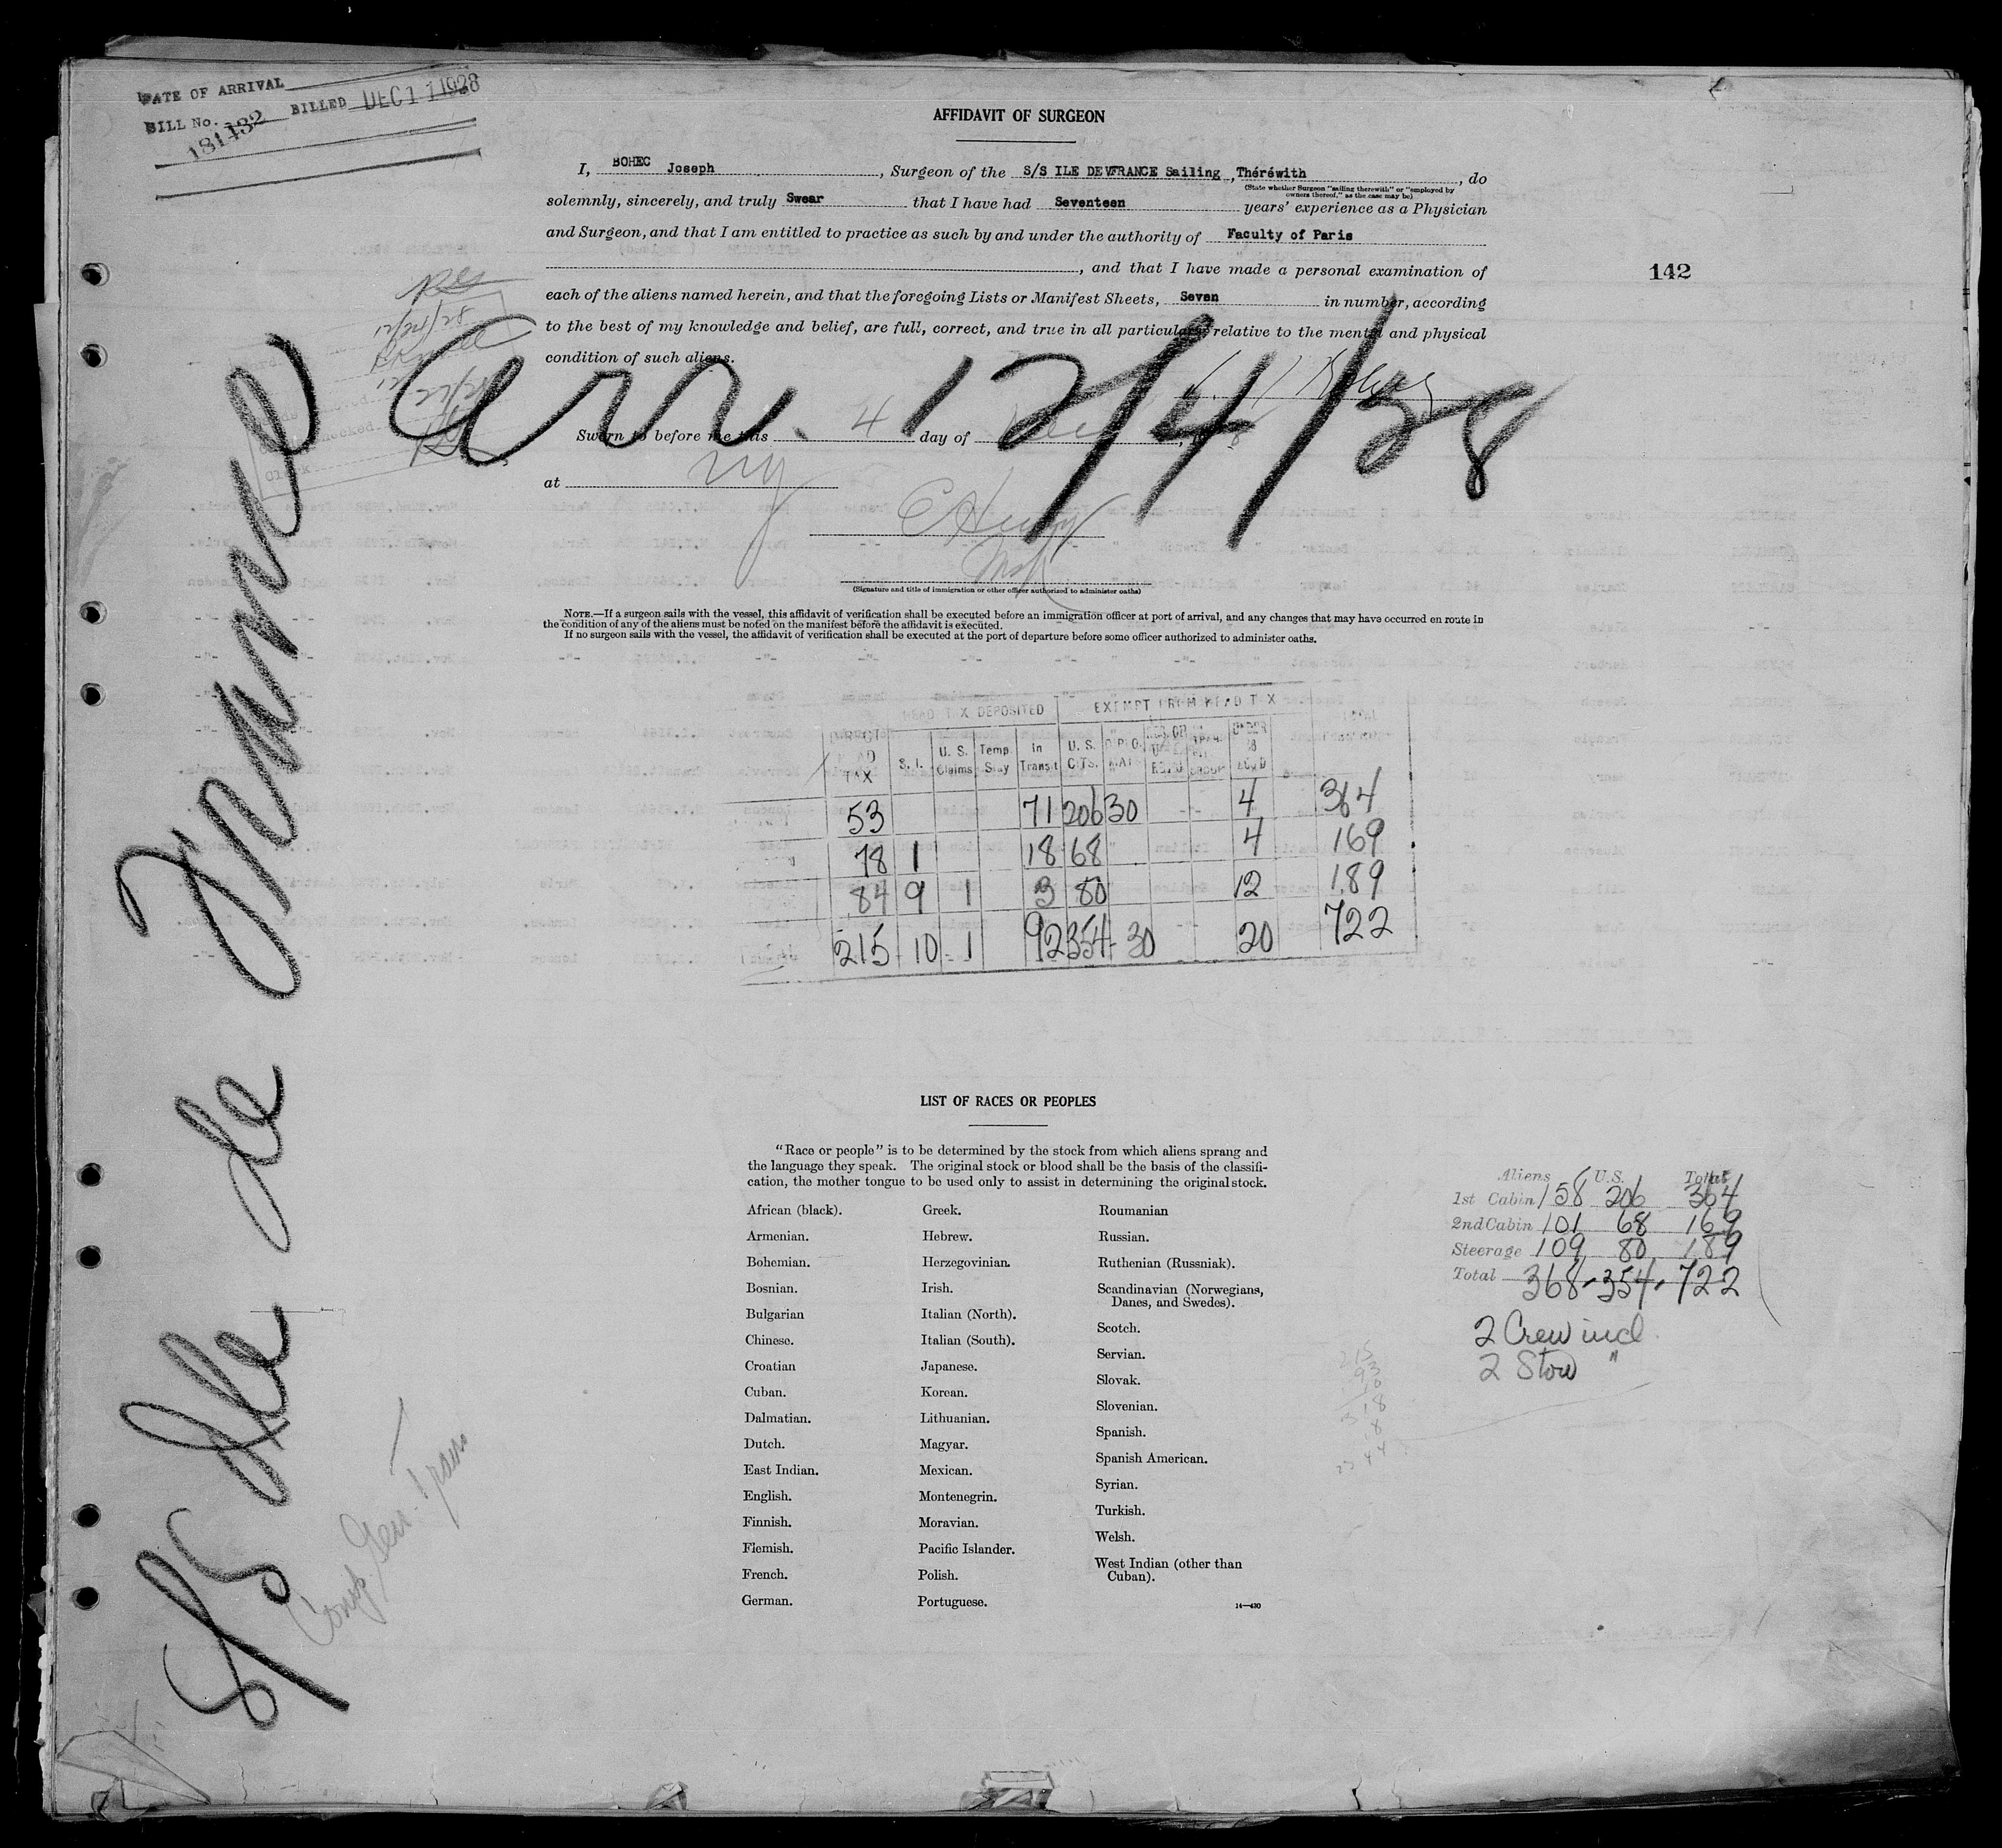 DATE OF ARRIVAL
BILL No. 181432 BILLED DEC 11 1928
AFFIDAVIT OF SURGEON
I, BOHEC Joseph, Surgeon of the S/S ILE DEVFRANCE Sailing, Théréwith, do
(State whether Surgeon "sailing therewith" or "employed by
owners thereof," as the case may be)
solemnly, sincerely, and truly Swear that I have had Seventeen years' experience as a Physician
and Surgeon, and that I am entitled to practice as such by and under the authority of Faculty of Paris
, and that I have made a personal examination of
142
each of the aliens named herein, and that the foregoing Lists or Manifest Sheets, Seven in number, according
to the best of my knowledge and belief, are full, correct, and true in all particulars relative to the mental and physical
condition of such aliens.
Arr. 12/4/28
Sworn to before me this 4 day of Dec
at NY
(Signature and title of immigration or other officer authorized to administer oaths)
NOTE.—If a surgeon sails with the vessel, this affidavit of verification shall be executed before an immigration officer at port of arrival, and any changes that may have occurred en route in
the condition of any of the aliens must be noted on the manifest before the affidavit is executed.
If no surgeon sails with the vessel, the affidavit of verification shall be executed at the port of departure before some officer authorized to administer oaths.
S/S Ile de France
Comp. Gen. Trans
HEAD TAX DEPOSITED EXEMPT FROM HEAD TAX
DIRECT HEAD TAX S. I. U. S. Claims Temp. Stay In Transit U. S. CITS. DIPLOMAT UNDER 16 ACC'D
53 71 206 30 4 364
78 1 18 68 4 169
84 9 1 3 80 12 189
215 10 1 92 354 30 20 722
LIST OF RACES OR PEOPLES
"Race or people" is to be determined by the stock from which aliens sprang and
the language they speak. The original stock or blood shall be the basis of the classifi-
cation, the mother tongue to be used only to assist in determining the original stock.
African (black). Greek. Roumanian
Armenian. Hebrew. Russian.
Bohemian. Herzegovinian. Ruthenian (Russniak).
Bosnian. Irish. Scandinavian (Norwegians,
Danes, and Swedes).
Bulgarian Italian (North).
Scotch.
Chinese. Italian (South).
Servian.
Croatian Japanese.
Slovak.
Cuban. Korean.
Slovenian.
Dalmatian. Lithuanian.
Spanish.
Dutch. Magyar.
Spanish American.
East Indian. Mexican.
Syrian.
English. Montenegrin.
Turkish.
Finnish. Moravian.
Welsh.
Flemish. Pacific Islander.
West Indian (other than
Cuban).
French. Polish.
German. Portuguese.
14—430
Aliens U.S. Total
1st Cabin 158 206 364
2nd Cabin 101 68 169
Steerage 109 80 189
Total 368 354 722
2 Crew incl.
2 Stow "
215
93
10
318